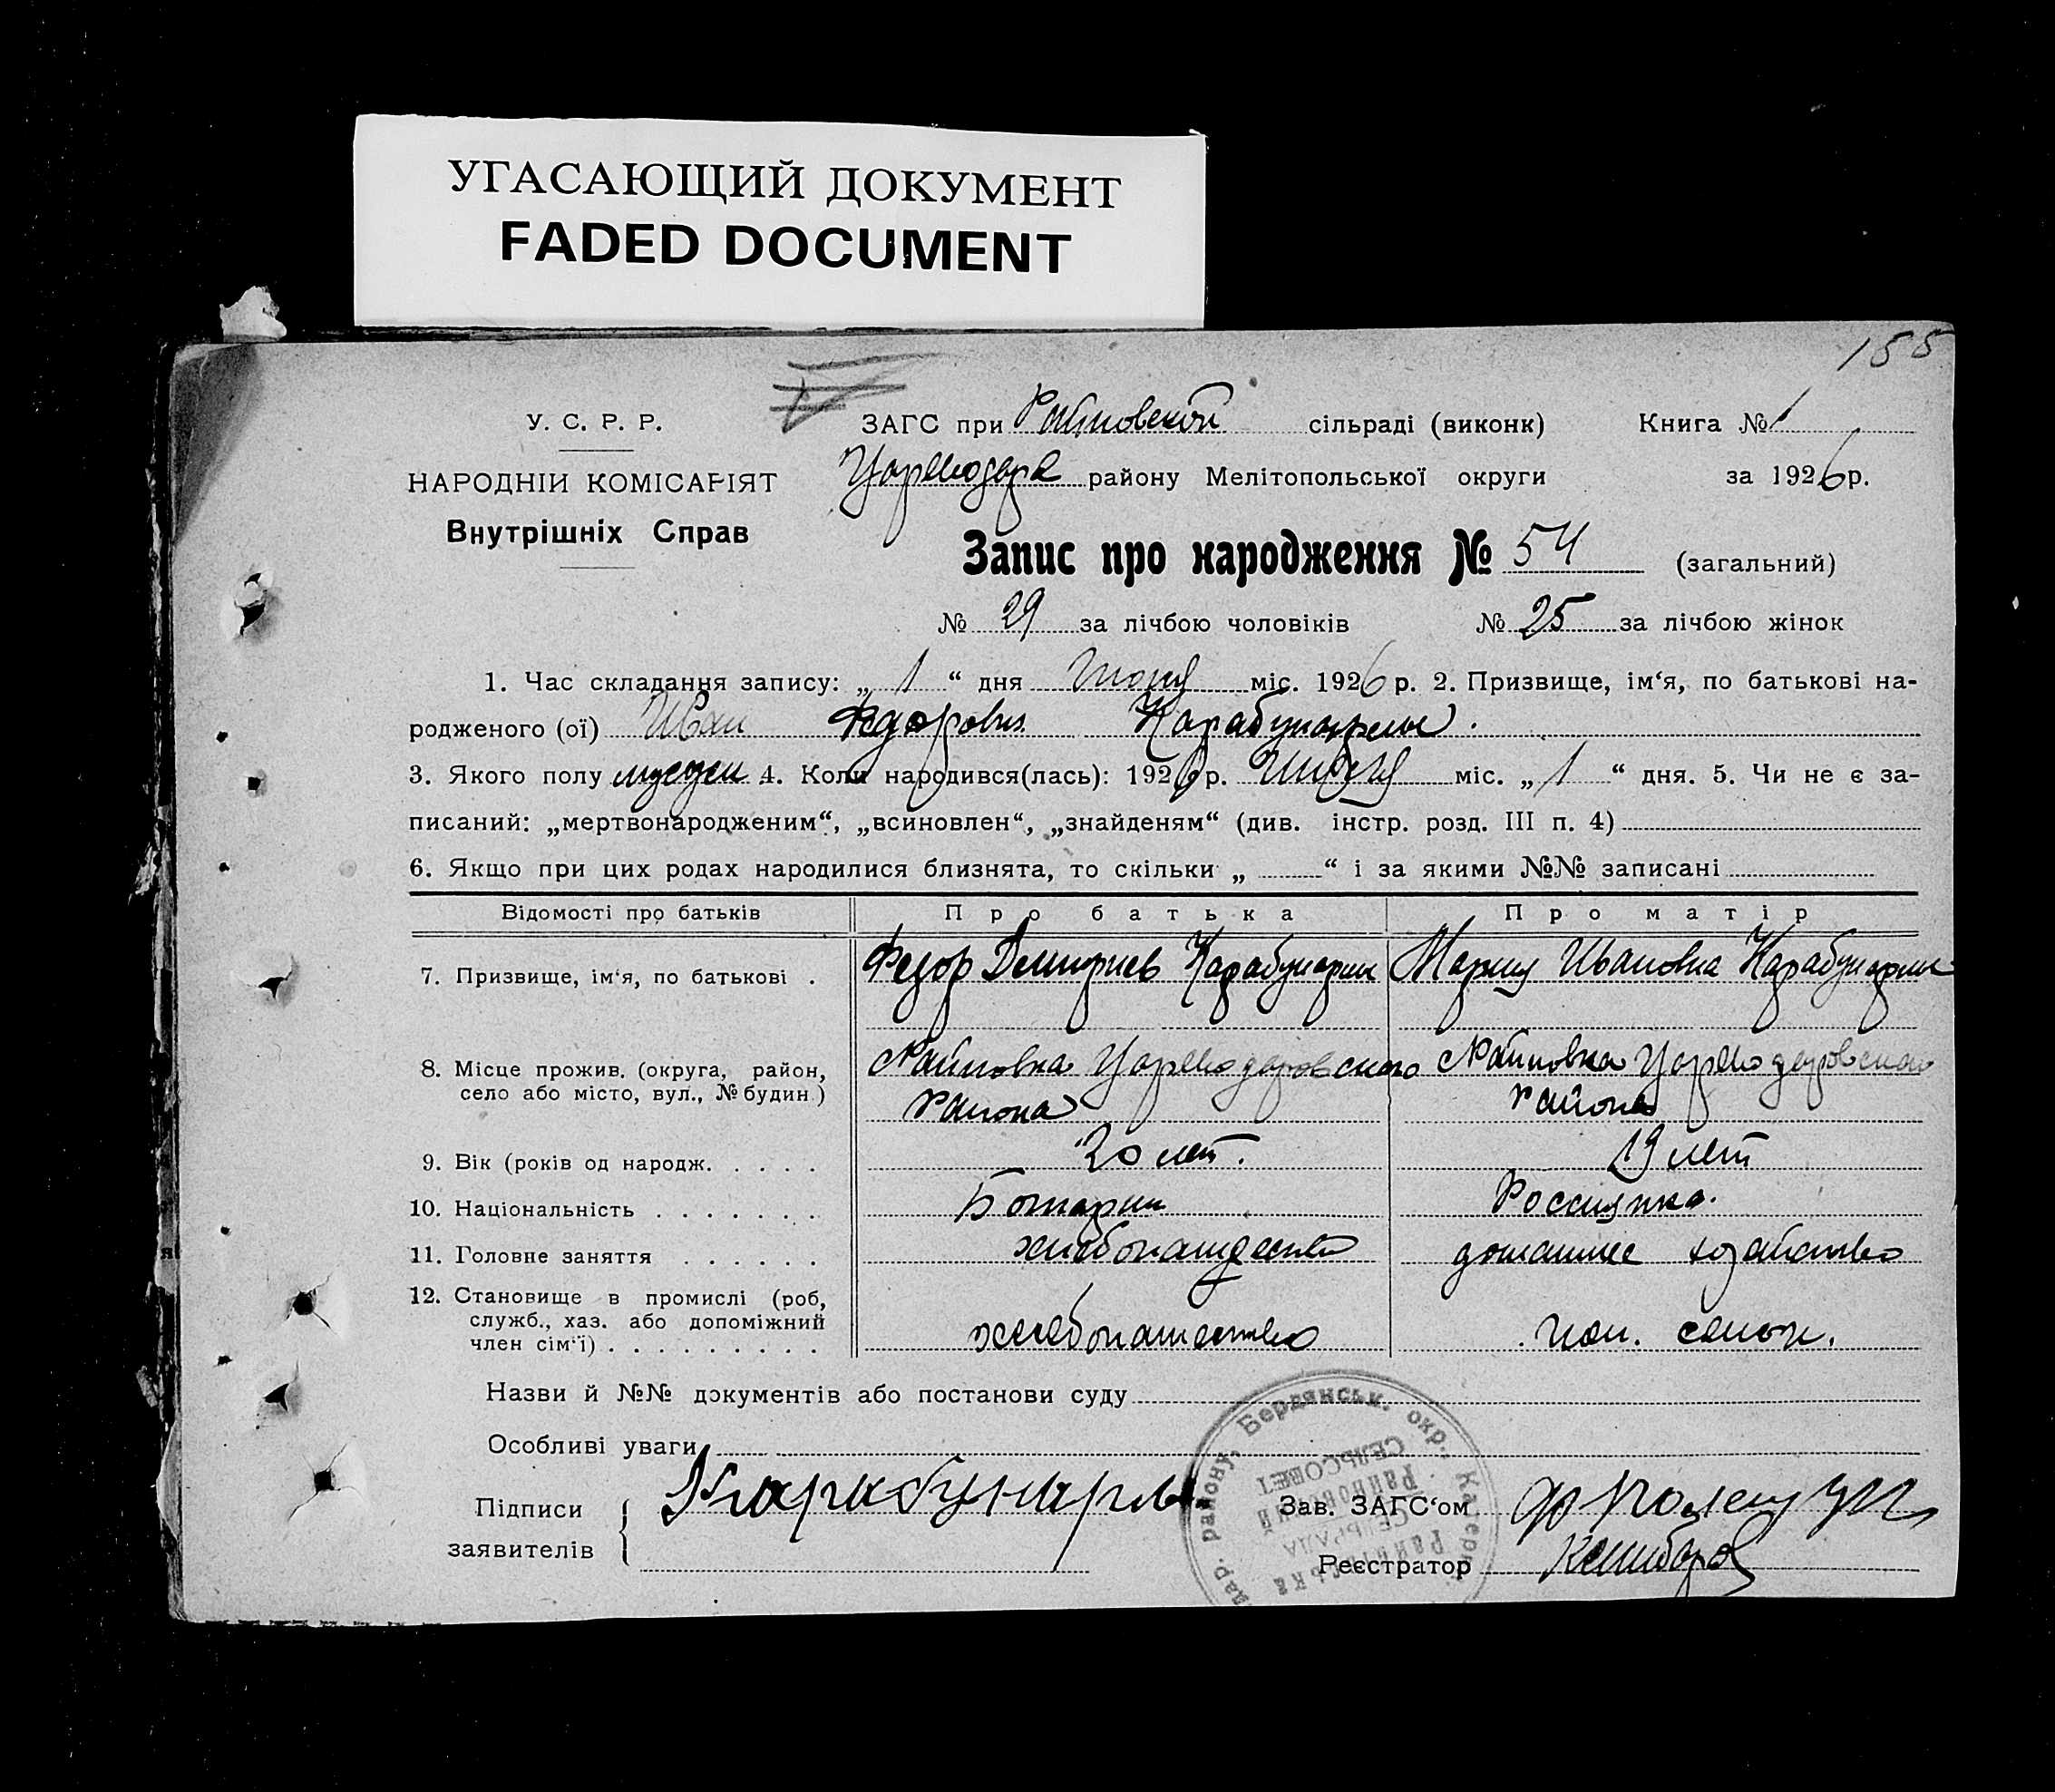 УГАСАЮЩИЙ ДОКУМЕНТ
FADED DOCUMENT
155
У. С. Р. Р.
ЗАГС при Райновской сільраді (виконк) Книга № 1
НАРОДНІЙ КОМІСАРІЯТ
району Мелітопольської округи за 1926 р.
Внутрішніх Справ
Запис про народження № 54 (загальний)
№ 29 за лічбою чоловіків № 25 за лічбою жінок
1. Час складання запису: „ 1 “ дня міс. 1926 р. 2. Призвище, ім‘я, по батькові на-
родженого (ої) Иван Федорович
3. Якого полу 4. Коли народився(лась): 1926 р. міс. „ 1 “ дня. 5. Чи не є за-
писаний: „мертвонародженим“, „всиновлен“, „знайденям“ (див. інстр. розд. III п. 4)
6. Якщо при цих родах народилися близнята, то скільки „ “ і за якими №№ записані
Відомості про батьків Про батька Про матір
7. Призвище, ім‘я, по батькові . Федор Дмитриев Карабунарли Мария Ивановна Карабунарли
8. Місце прожив. (округа, район, Райновка Райновка
село або місто, вул., № будин.) района района
9. Вік (років од народж. . . . . 20 лет. 19 лет
10. Національність . . . . . . . Россиянка.
11. Головне заняття . . . . . . хлебопашество домашнее хозяйство
12. Становище в промислі (роб,
служб., хаз. або допоміжний
член сім‘ї) . . . . . . . . . хлебопашество
Назви й №№ документів або постанови суду
Особливі уваги
Підписи Зав. ЗАГС‘ом
заявителів Реєстратор
району, Бердянськ. окр., Катер
СЕЛЬСОВЕТ
СЕЛЬРАДА